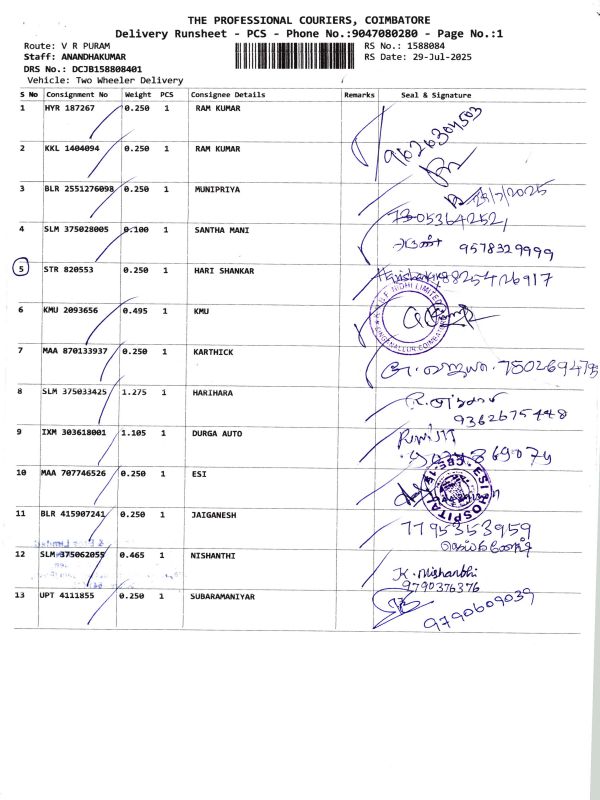 THE PROFESSIONAL COURIERS, COIMBATORE
Delivery Runsheet - PCS - Phone No.:9047080280 - Page No.:1
Route: V R PURAM RS No.: 1588084
Staff: ANANDHAKUMAR RS Date: 29-Jul-2025
DRS No.: DCJB158808401
Vehicle: Two Wheeler Delivery
S No Consignment No Weight PCS Consignee Details Remarks Seal & Signature
1 HYR 187267 0.250 1 RAM KUMAR 9626304503
2 KKL 1404094 0.250 1 RAM KUMAR
3 BLR 2551276098 0.250 1 MUNIPRIYA 29/7/2025
4 SLM 375028005 0.100 1 SANTHA MANI
அருண் 9578329999
5 STR 820553 0.250 1 HARI SHANKAR 8825426917
6 KMU 2093656 0.495 1 KMU
7 MAA 870133937 0.250 1 KARTHICK
8 SLM 375033425 1.275 1 HARIHARA
9362675448
9 IXM 303618001 1.105 1 DURGA AUTO
10 MAA 707746526 0.250 1 ESI ESI HOSPITAL
11 BLR 415907241 0.250 1 JAIGANESH 7795353959
12 SLM 375062055 0.465 1 NISHANTHI K. Nishanthi
9790376376
13 UPT 4111855 0.250 1 SUBARAMANIYAR 9790609039